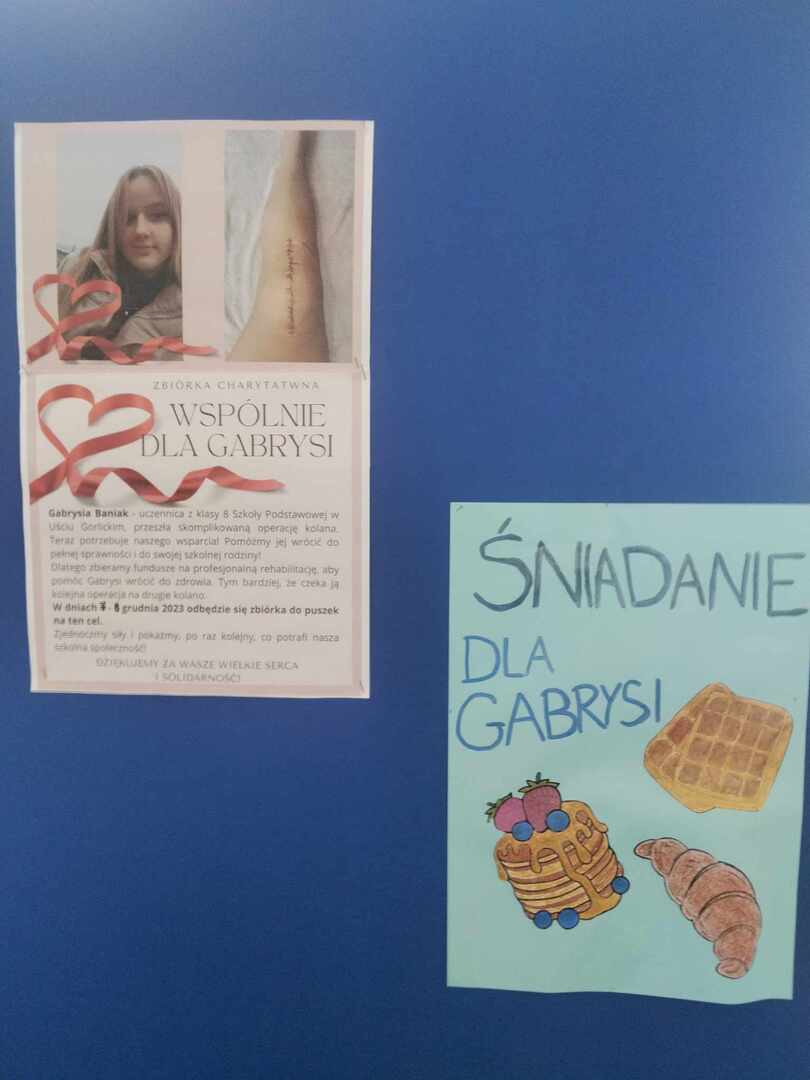 ZBIÓRKA CHARYTATWNA
WSPÓLNIE
DLA GABRYSI
Gabrysia Baniak - uczennica z klasy 8 Szkoły Podstawowej w
Uściu Gorlickim, przeszła skomplikowaną operację kolana.
Teraz potrzebuje naszego wsparcia! Pomóżmy jej wrócić do
pełnej sprawności i do swojej szkolnej rodziny!
Dlatego zbieramy fundusze na profesjonalną rehabilitację, aby
pomóc Gabrysi wrócić do zdrowia. Tym bardziej, że czeka ją
kolejna operacja na drugie kolano.
W dniach 7 - 8 grudnia 2023 odbędzie się zbiórka do puszek
na ten cel.
Zjednoczmy siły i pokażmy, po raz kolejny, co potrafi nasza
szkolna społeczność!
DZIĘKUJEMY ZA WASZE WIELKIE SERCA
I SOLIDARNOŚĆ!
ŚNIADANIE
DLA
GABRYSI